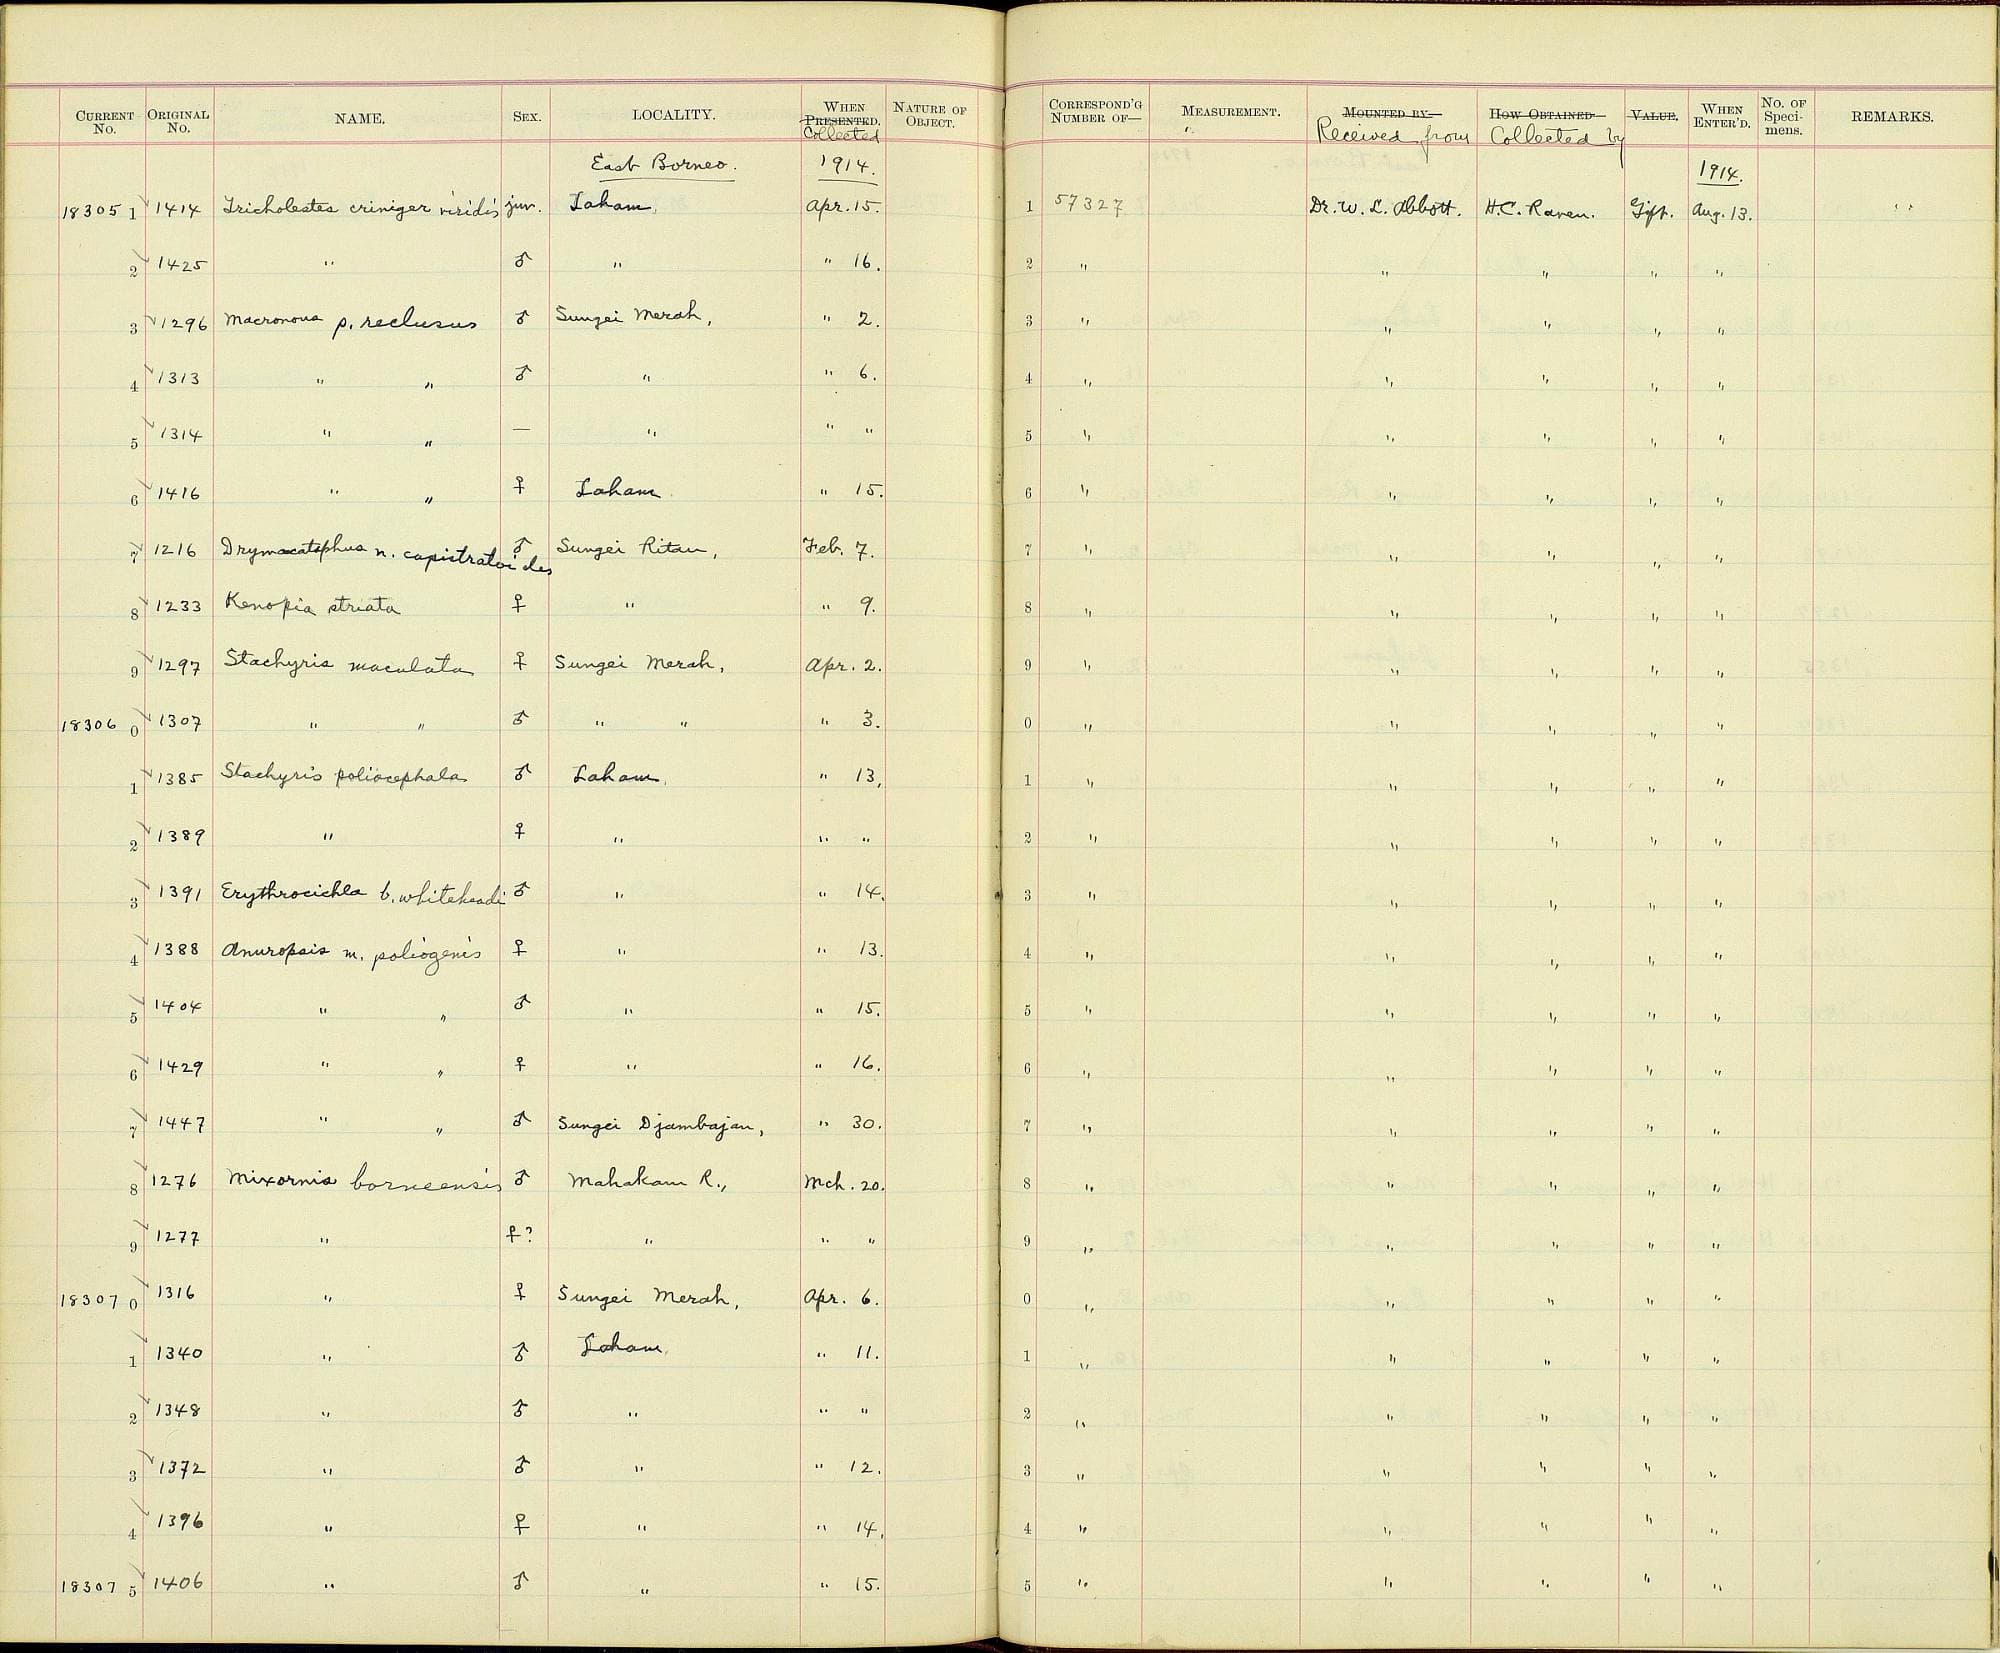 CURRENT No. ORIGINAL No. NAME. SEX. LOCALITY. WHEN PRESENTED. Collected NATURE OF OBJECT. CORRESPOND'G NUMBER OF— MEASUREMENT. MOUNTED BY— Received from HOW OBTAINED— Collected by VALUE. WHEN ENTER'D. No. OF Speci-mens. REMARKS.
East Borneo. 1914. 1914.
18305 1 1414 Tricholestes criniger viridis juv. Laham, Apr. 15. 1 57327 Dr. W. L. Abbott. H.C. Raven. Gift. Aug. 13.
2 1425 " ♂ " " 16. 2 " " " " "
3 1296 Macronous p. reclusus ♂ Sungei Merah, " 2. 3 " " " " "
4 1313 " " ♂ " " 6. 4 " " " " "
5 1314 " " — " " " 5 " " " " "
6 1416 " " ♀ Laham. " 15. 6 " " " " "
7 1216 Drymocataphus n. capistratoides ♂ Sungei Ritan, Feb. 7. 7 " " " " "
8 1233 Kenopia striata ♀ " " 9. 8 " " " " "
9 1297 Stachyris maculata ♀ Sungei Merah, Apr. 2. 9 " " " " "
18306 0 1307 " " ♂ " " " 3. 0 " " " " "
1 1385 Stachyris poliocephala ♂ Laham, " 13, 1 " " " " "
2 1389 " ♀ " " " 2 " " " " "
3 1391 Erythrocichla b. whiteheadi ♂ " " 14. 3 " " " " "
4 1388 Anuropsis m. poliogenis ♀ " " 13. 4 " " " " "
5 1404 " " ♂ " " 15. 5 " " " " "
6 1429 " " ♀ " " 16. 6 " " " " "
7 1447 " " ♂ Sungei Djambajan, " 30. 7 " " " " "
8 1276 Mixornis borneensis ♂ Mahakam R., Mch. 20. 8 " " " " "
9 1277 " ♀? " " " 9 " " " " "
18307 0 1316 " ♀ Sungei Merah, Apr. 6. 0 " " " " "
1 1340 " ♂ Laham, " 11. 1 " " " " "
2 1348 " ♂ " " " 2 " " " " "
3 1372 " ♂ " " 12. 3 " " " " "
4 1396 " ♀ " " 14, 4 " " " " "
18307 5 1406 " ♂ " " 15. 5 " " " " "